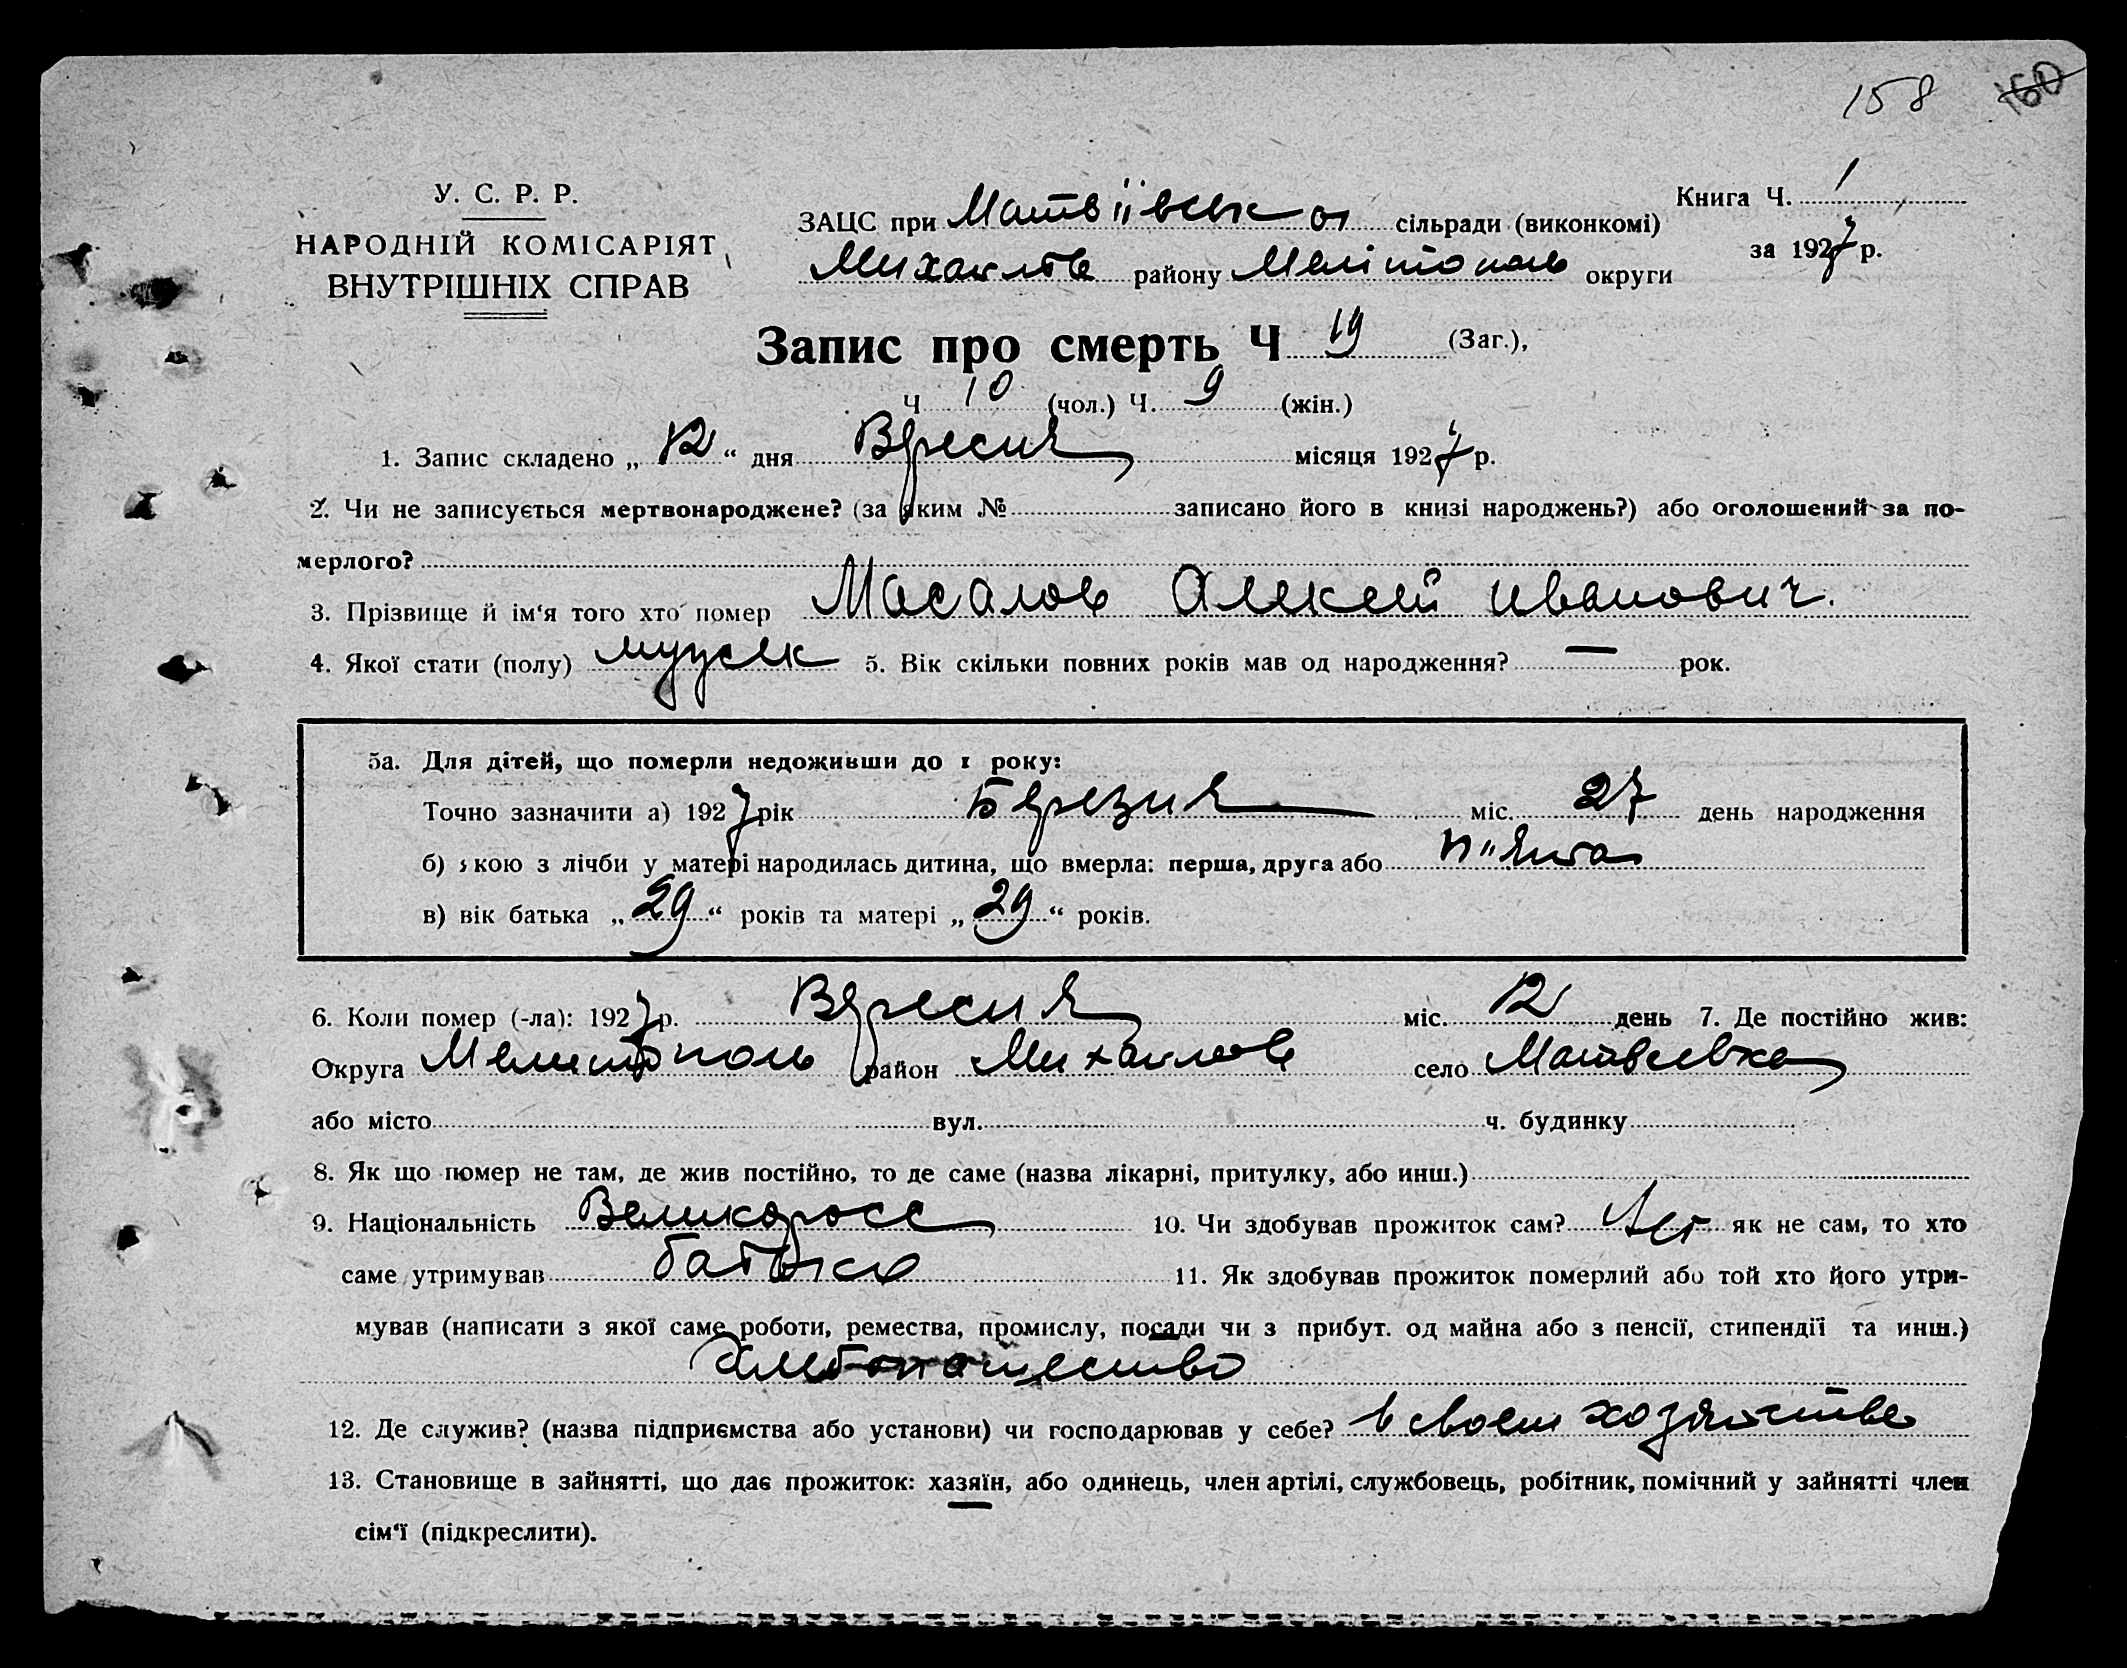 158 160
У. С. Р. Р.
НАРОДНІЙ КОМІСАРІЯТ
ВНУТРІШНІХ СПРАВ
ЗАЦС при Матвіївськ ої сільради (виконкомі)
Михайлів району Мелітополь округи
Книга Ч. 1
за 1927 р.
Запис про смерть Ч 19 (Заг.),
Ч 10 (чол.) Ч. 9 (жін.)
1. Запис складено „ 12 “ дня Вересня місяця 1927 р.
2. Чи не записується мертвонароджене? (за яким № записано його в книзі народжень?) або оголошений за по-
мерлого?
3. Прізвище й ім‘я того хто помер Масалов Алексей Иванович.
4. Якої стати (полу) мужск 5. Вік скільки повних років мав од народження? — рок.
5а. Для дітей, що померли недоживши до 1 року:
Точно зазначити а) 1927 рік Березня міс. 27 день народження
б) якою з лічби у матері народилась дитина, що вмерла: перша, друга або п"ята
в) вік батька „ 29 “ років та матері „ 29 “ років.
6. Коли помер (-ла): 1927 р. Вересня міс. 12 день 7. Де постійно жив:
Округа Мелитополь район Михайлов село Матвеевка
або місто вул. ч. будинку
8. Як що помер не там, де жив постійно, то де саме (назва лікарні, притулку, або инш.)
9. Національність Великоросс 10. Чи здобував прожиток сам? Нет як не сам, то хто
саме утримував батько 11. Як здобував прожиток померлий або той хто його утри-
мував (написати з якої саме роботи, ремества, промислу, посади чи з прибут. од майна або з пенсії, стипендії та инш.)
Хлебопашество
12. Де служив? (назва підприємства або установи) чи господарював у себе? в своем хозяйстве
13. Становище в зайнятті, що дає прожиток: хазяїн, або одинець, член артілі, службовець, робітник, помічний у зайнятті член
сім‘ї (підкреслити).